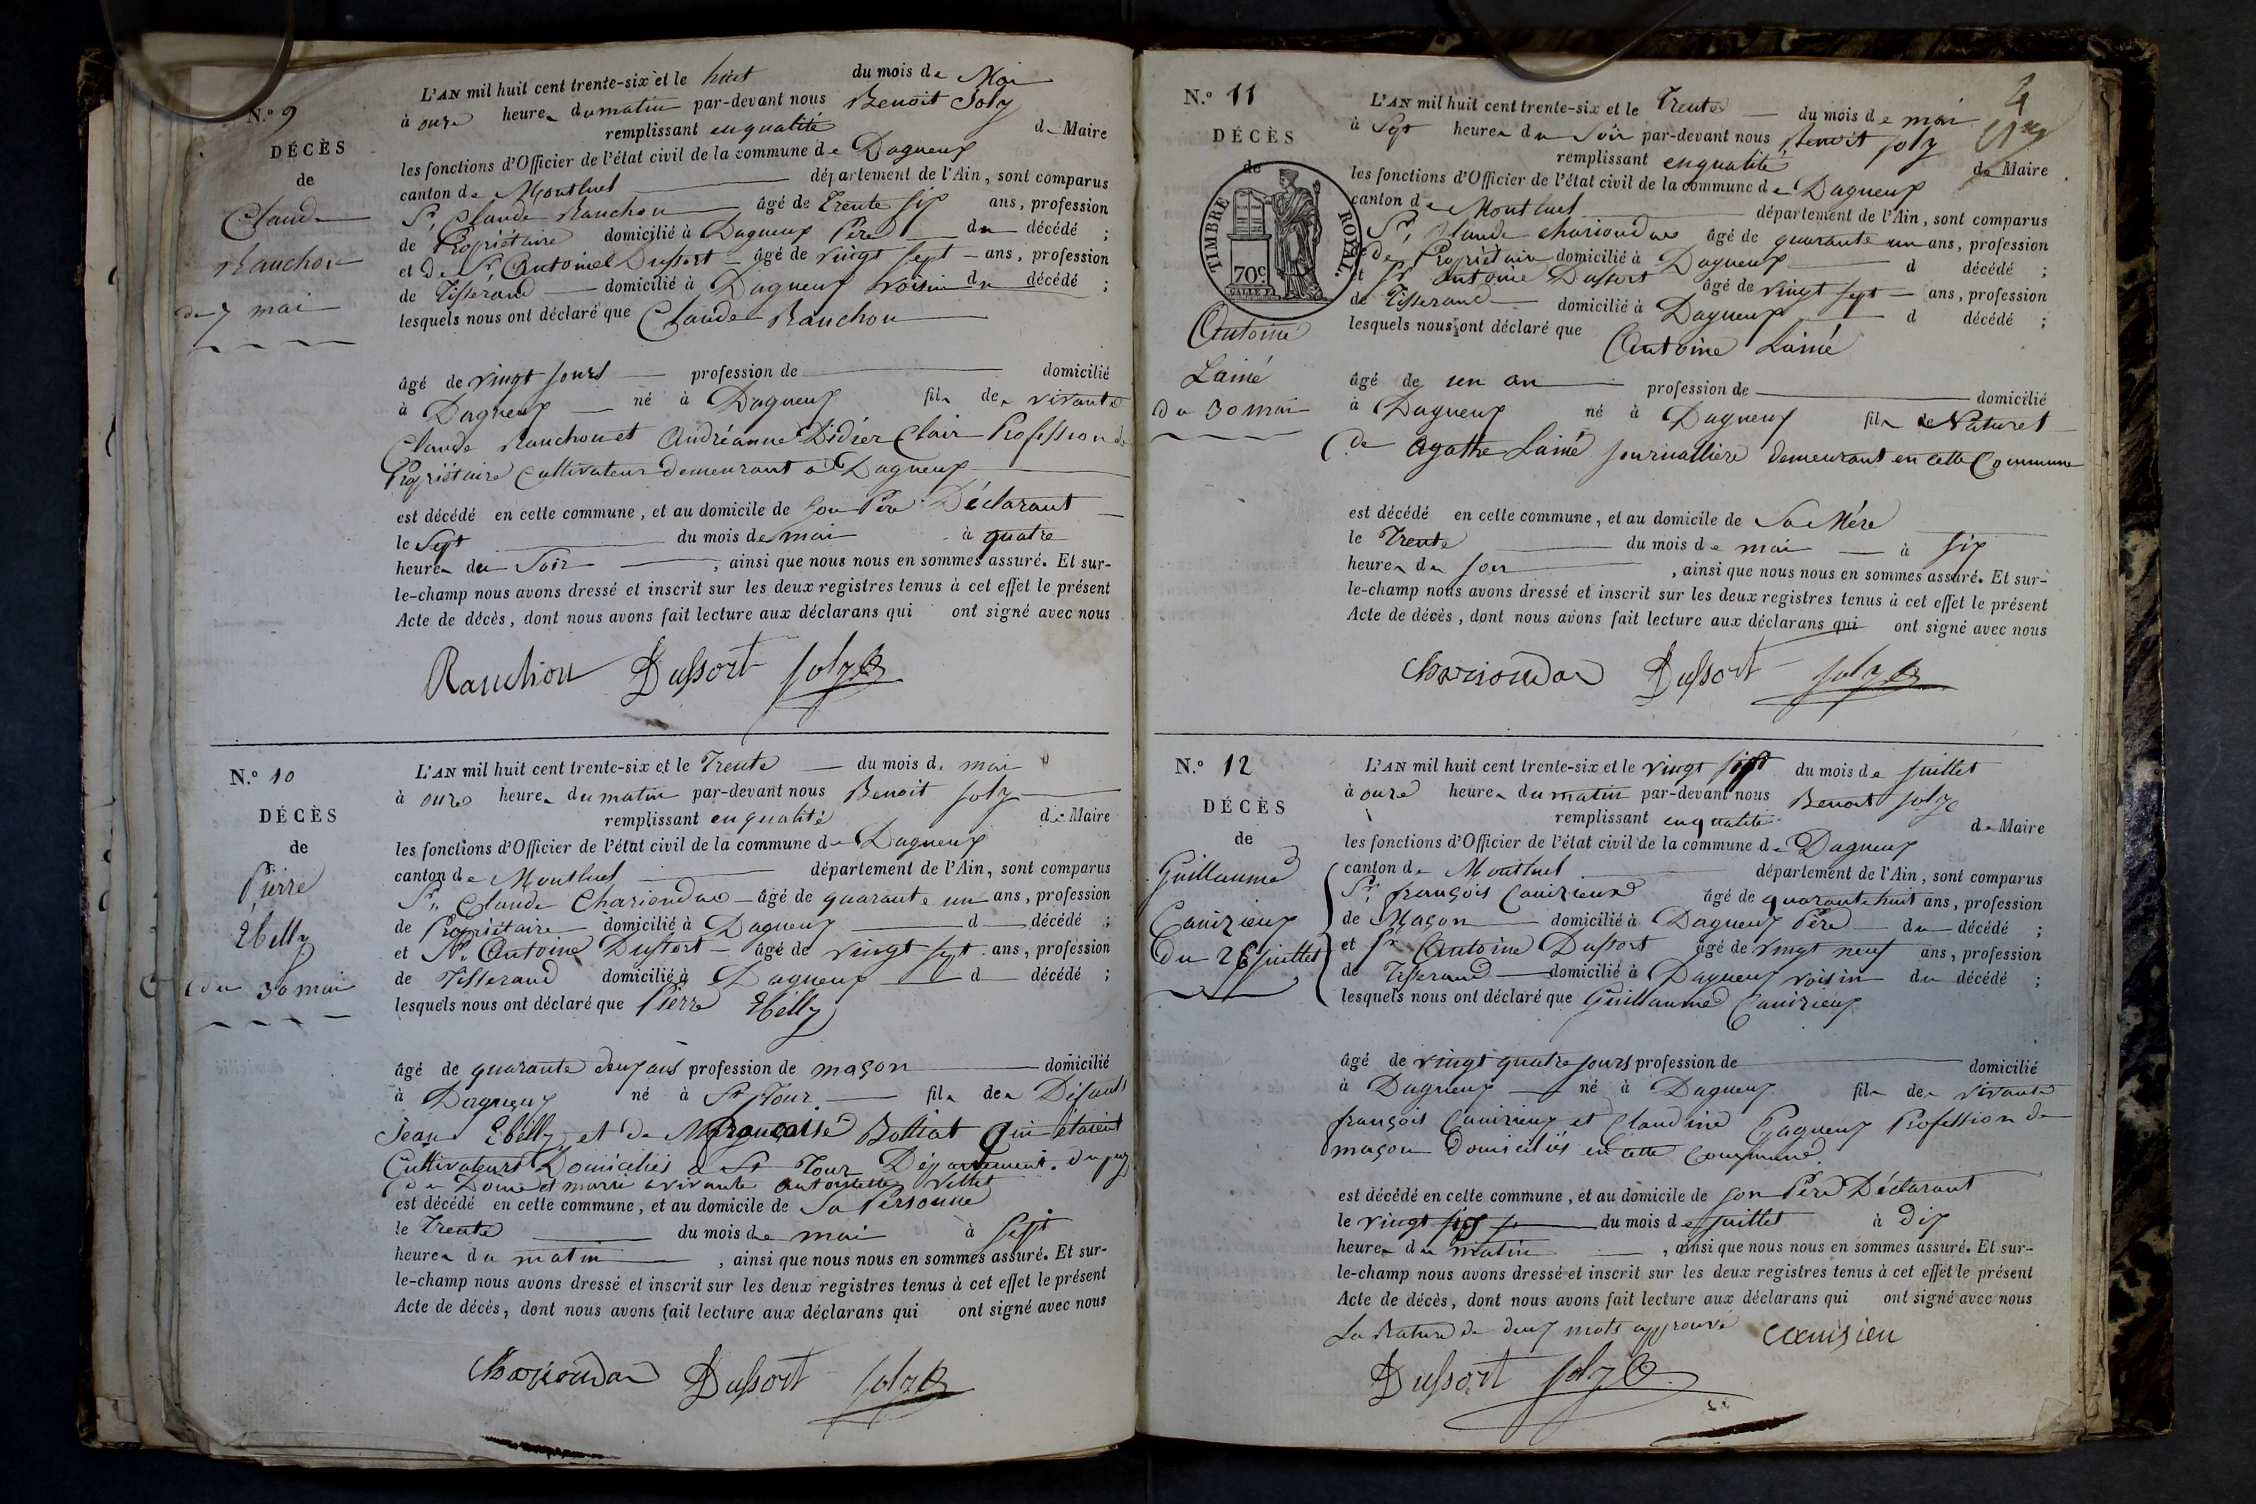 N.º 9
DÉCÈS
de
Claude
Ranchon
du 7 mai
L'AN mil huit cent trente-six et le huit du mois de Mai
à onze heures du matin par-devant nous Benoit Joly
remplissant en qualité de Maire
les fonctions d'Officier de l'état civil de la commune de Dagneux
canton de Montluel département de l'Ain, sont comparus
Sr. Claude Ranchon âgé de Trente six ans, profession
de Propriétaire domicilié à Dagneux Père du décédé ;
et de Sr. Antoine Dussort âgé de vingt sept ans, profession
de Tisserand domicilié à Dagneux voisin du décédé ;
lesquels nous ont déclaré que Claude Ranchon
âgé de vingt jours profession de domicilié
à Dagneux né à Dagneux fils des vivants
Claude Ranchon et Andréanne Didier Clair Profession de
Propriétaire Cultivateur demeurant à Dagneux
est décédé en cette commune, et au domicile de son Père Déclarant
le Sept du mois de mai à quatre
heures du Soir, ainsi que nous nous en sommes assuré. Et sur-
le-champ nous avons dressé et inscrit sur les deux registres tenus à cet effet le présent
Acte de décès, dont nous avons fait lecture aux déclarans qui ont signé avec nous
Ranchon Dussort Joly
N.º 10
DÉCÈS
de
Pierre
Ebelly
du 30 mai
L'AN mil huit cent trente-six et le Trente du mois de mai
à onze heures du matin par-devant nous Benoit Joly
remplissant en qualité de Maire
les fonctions d'Officier de l'état civil de la commune de Dagneux
canton de Montluel département de l'Ain, sont comparus
Sr. Claude Chariondas âgé de quarante un ans, profession
de Propriétaire domicilié à Dagneux d décédé ;
et Sr. Antoine Dussort âgé de vingt sept ans, profession
de Tisserand domicilié à Dagneux d décédé ;
lesquels nous ont déclaré que Pierre Ebélly
âgé de quarante deux ans profession de maçon domicilié
à Dagneux né à St. Flour fils des Défunts
Jean Ebélly et de Françoise Bolliat Qui étaient
Cultivateurs Domiciliés à St Flour Département du puy
de Dome et marié a vivante antoinette Villet
est décédé en cette commune, et au domicile de Sa Personne
le Trente du mois de mai à sept
heures du matin, ainsi que nous nous en sommes assuré. Et sur-
le-champ nous avons dressé et inscrit sur les deux registres tenus à cet effet le présent
Acte de décès, dont nous avons fait lecture aux déclarans qui ont signé avec nous
Chariondas Dussort Joly
4
N.º 11
DÉCÈS
de
TIMBRE ROYAL.
70c
Antoine
Lainé
du 30 mai
L'AN mil huit cent trente-six et le Trente du mois de mai
à Sept heures du Soir par-devant nous Benoit Joly
remplissant en qualité de Maire
les fonctions d'Officier de l'état civil de la commune de Dagneux
canton de Montluel département de l'Ain, sont comparus
Sr. Claude Chariondas âgé de quarante un ans, profession
de Propriétaire domicilié à Dagneux d décédé ;
et Sr Antoine Dussort âgé de vingt sept ans, profession
de Tisserand domicilié à Dagneux d décédé ;
lesquels nous ont déclaré que Antoine Lainé
âgé de un an profession de domicilié
à Dagneux né à Dagneux fils de Naturel
de Agathe Lainé journallière demeurant en cette Commune
est décédé en cette commune, et au domicile de Sa Mère
le Trente du mois de mai à six
heures du soir, ainsi que nous nous en sommes assuré. Et sur-
le-champ nous avons dressé et inscrit sur les deux registres tenus à cet effet le présent
Acte de décès, dont nous avons fait lecture aux déclarans qui ont signé avec nous
Chariondas Dussort Joly
N.º 12
DÉCÈS
de
Guillaume
Canizieux
du 26 juillet
L'AN mil huit cent trente-six et le vingt sept du mois de juillet
à onze heures du matin par-devant nous Benoit Joly
remplissant en qualité de Maire
les fonctions d'Officier de l'état civil de la commune de Dagneux
canton de Montluel département de l'Ain, sont comparus
Sr. françois Canizieux âgé de quarante huit ans, profession
de Maçon domicilié à Dagneux Père du décédé ;
et Sr Antoine Dussort âgé de vingt neuf ans, profession
de Tisserand domicilié à Dagneux voisin du décédé ;
lesquels nous ont déclaré que Guillaume Canizieux
âgé de vingt quatre jours profession de domicilié
à Dagneux né à Dagneux fils des vivants
françois Canizieux et Claudine Gagneux Profession de
maçon domiciliés en cette Commune.
est décédé en cette commune, et au domicile de son Père Déclarant
le vingt six du mois de juillet à Dix
heures du matin, ainsi que nous nous en sommes assuré. Et sur-
le-champ nous avons dressé et inscrit sur les deux registres tenus à cet effet le présent
Acte de décès, dont nous avons fait lecture aux déclarans qui ont signé avec nous
La Rature de deux mots approuvé Canisieu
Dussort Joly